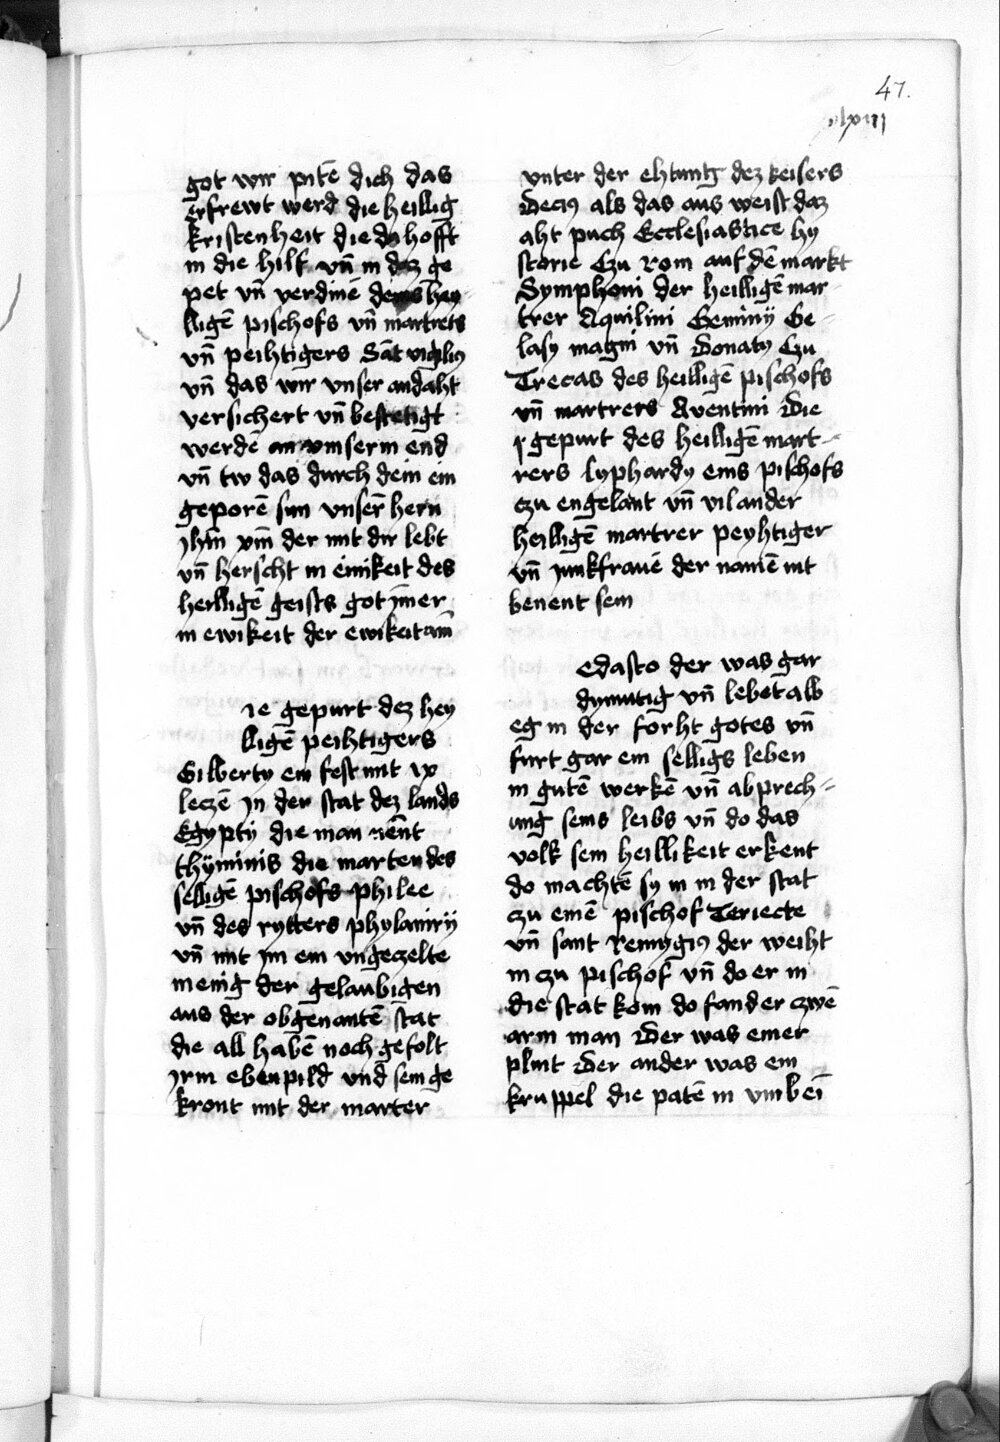 47.
xlxiij
got wir pitē dich das
erfrewt werd die heillig
kristenheit die do hofft
in die hilf vn̄ in daz ge
pet vn̄ verdinē deins hey
lligē pischofs vn̄ martrers
vn̄ peihtigers Sāt vigiliꝯ
vn̄ das wir vnser andaht
versichert vn̄ bestetigt
werdē an vnserm end
vn̄ tw das durch dein ein
geporē sun vnserꝰ hern
yhm̄ xp̄m der mit dir lebt
vn̄ herscht in einikeit des
heilligē geists got ym̄er
in ewikeit der ewikeit am̄
ie gepurt dez hey
lligē peihtigers
Gilberty ein fest mit ix
leczē In der stat dez lands
Egypty die man nēnt
thyminis die marter des
selligē pischofs philee
vn̄ des rytters phylaniry
vn̄ mit im ein vngeczelte
menig der gelaubigen
aus der obgenantē stat
die all habē noch gefolt
irm ebenpild vnd sein ge
kront mit der marter
vnter der ehtung dez keisers
Deciꝯ als das aus weist daz
aht puch Ecclesiastice hy
storie Czu rom auf dē markt
Symphoni der heilligē mar
trer Aquilini Geminy Ge
lasy magni vn̄ Donatꝯ Czu
Trecas des heilligē pischofs
vn̄ martrers Aventini Die
gepurt des heilligē mart
rers lyphardy eins pischofs
czu engelant vn̄ vil ander
heilligē martrer peyhtiger
vn̄ junkfrauē der namē nit
benent sein
edasto der was gar
dymutig vn̄ lebet alb
eg in der forht gotes vn̄
furt gar ein selligs leben
in gutē werkē vn̄ abprech
ung seins leibs vn̄ do das
volk sein heillikeit erkent
do machtē sy in in der stat
czu einē pischof Teriecte
vn̄ sant Remygiꝯ der weiht
in czu pischof vn̄ do er in
die stat kom do fand er czwē
arm man Der was einer
plint Der ander was ein
kruppel die patē in vmb ei